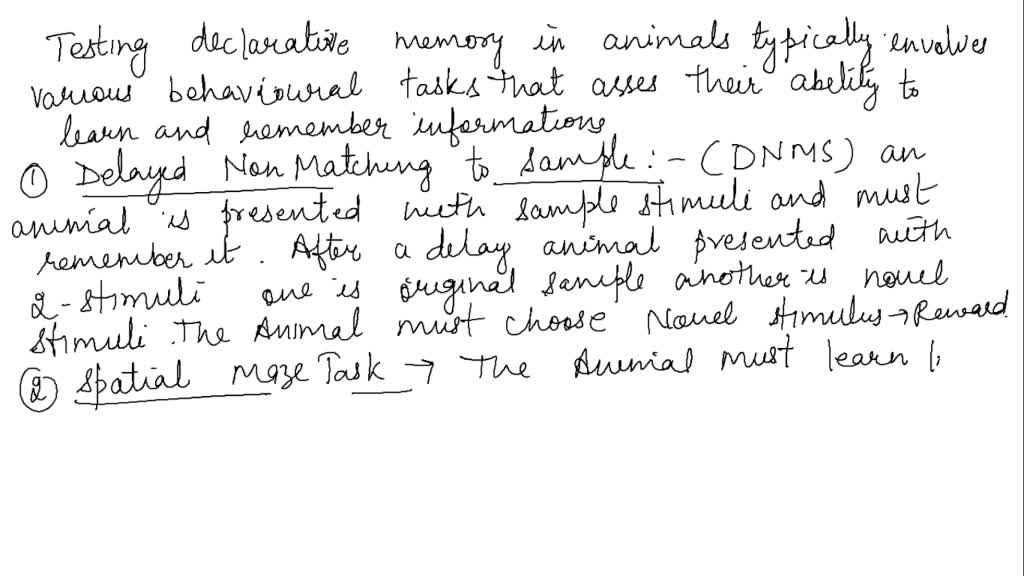 Testing declarative memory in animals typically envolves
various behavioural tasks that asses their abelity to
learn and remember informations
① Delayed Non Matching to sample :- (DNMS) an
animal is presented with sample stimuli and must
remember it. After a delay animal presented with
2-stimuli one is original sample another is novel
stimuli. The Animal must choose Novel stimulus → Reward.
② Spatial Maze Task → The Animal must learn